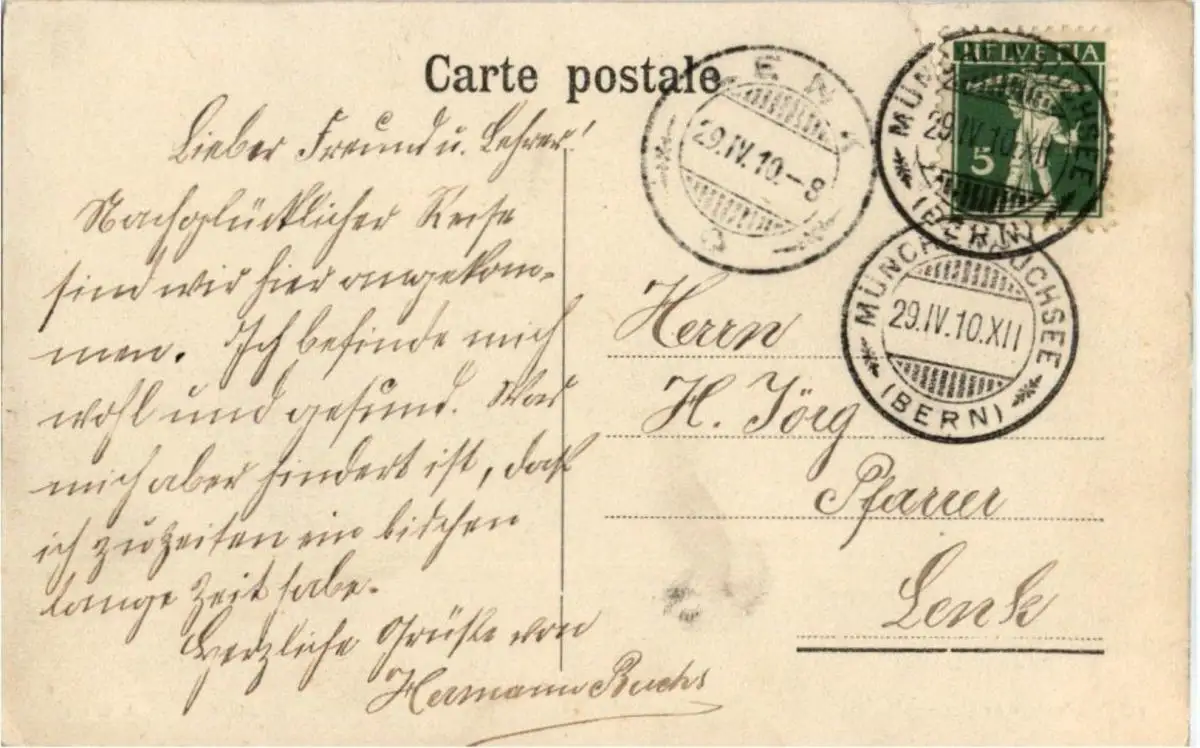 Carte postale
Lieber Freund u. Lehrer!
Nach glücklicher Reise
sind wir hier angekom-
men. Ich befinde mich
wohl und gesund. Was
mich aber hindert ist, daß
ich zuzeiten ein bischen
lange Zeit habe.
Herzliche Grüße von
Hermann Buchs
Herrn
H. Jörg
Pfarrer
Lenk
LENK
29.IV.10.-8
HELVETIA
5
MÜNCHENBUCHSEE
29.IV.10.XII
(BERN)
MÜNCHENBUCHSEE
29.IV.10.XII
(BERN)